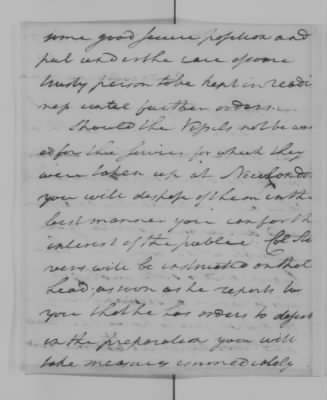 some good secure position and
put under the care of some
trusty person to be kept in readi
ness until further orders.
Should the Vessels not be wan
ed for the Services for which they
were taken up at New London
you will dispose of them in the
best manner you can for the
interest of the public. Col Ste
vens will be instructed on that
head, as soon as he reports to
you that he has orders to desist
in the preparation you will
take measures immediately